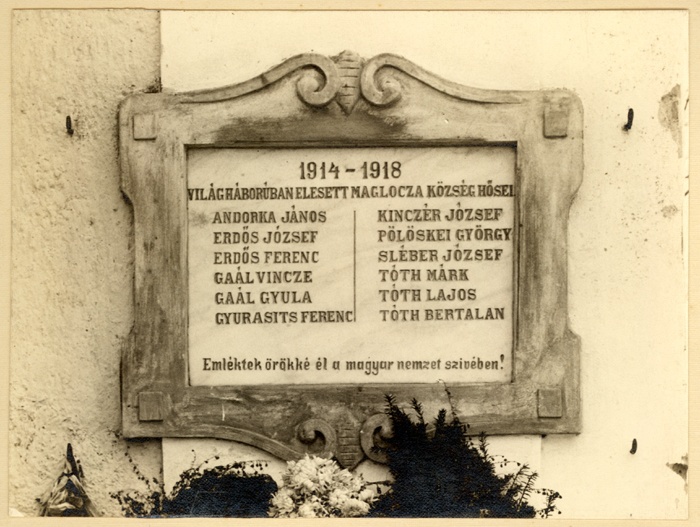 1914 - 1918
VILÁGHÁBORÚBAN ELESETT MAGLOCZA KÖZSÉG HŐSEI
ANDORKA JÁNOS
ERDŐS JÓZSEF
ERDŐS FERENC
GAÁL VINCZE
GAÁL GYULA
GYURASITS FERENC
KINCZÉR JÓZSEF
PÖLÖSKEI GYÖRGY
SLÉBER JÓZSEF
TÓTH MÁRK
TÓTH LAJOS
TÓTH BERTALAN
Emléktek örökké él a magyar nemzet szivében!